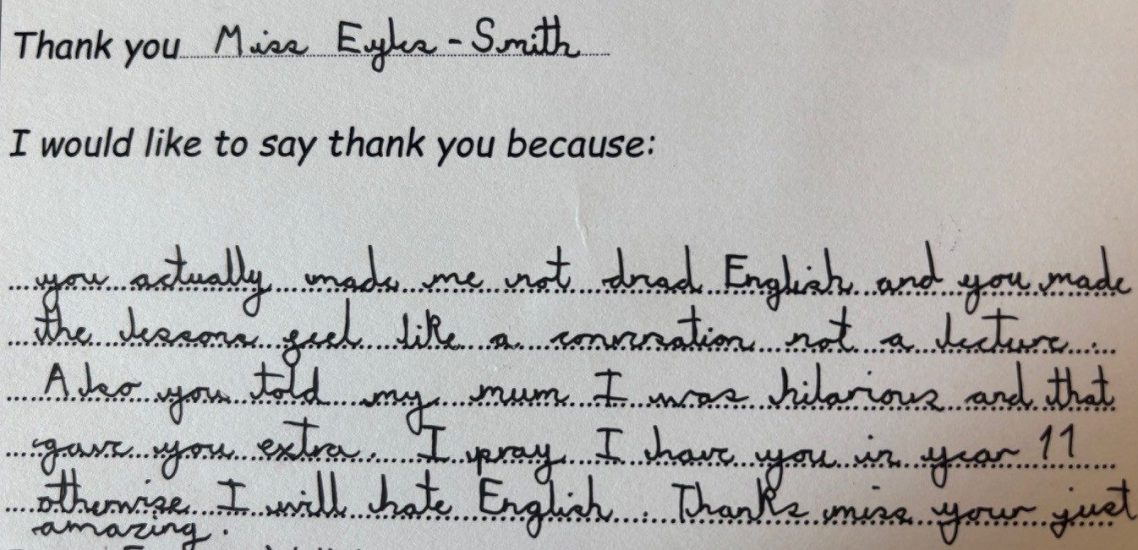 Thank you Miss Eyles-Smith
I would like to say thank you because:
you actually made me not dread English and you made
the lessons feel like a conversation not a lecture.
Also you told my mum I was hilarious and that
gave you extra. I pray I have you in year 11
otherwise I will hate English. Thanks miss your just
amazing.